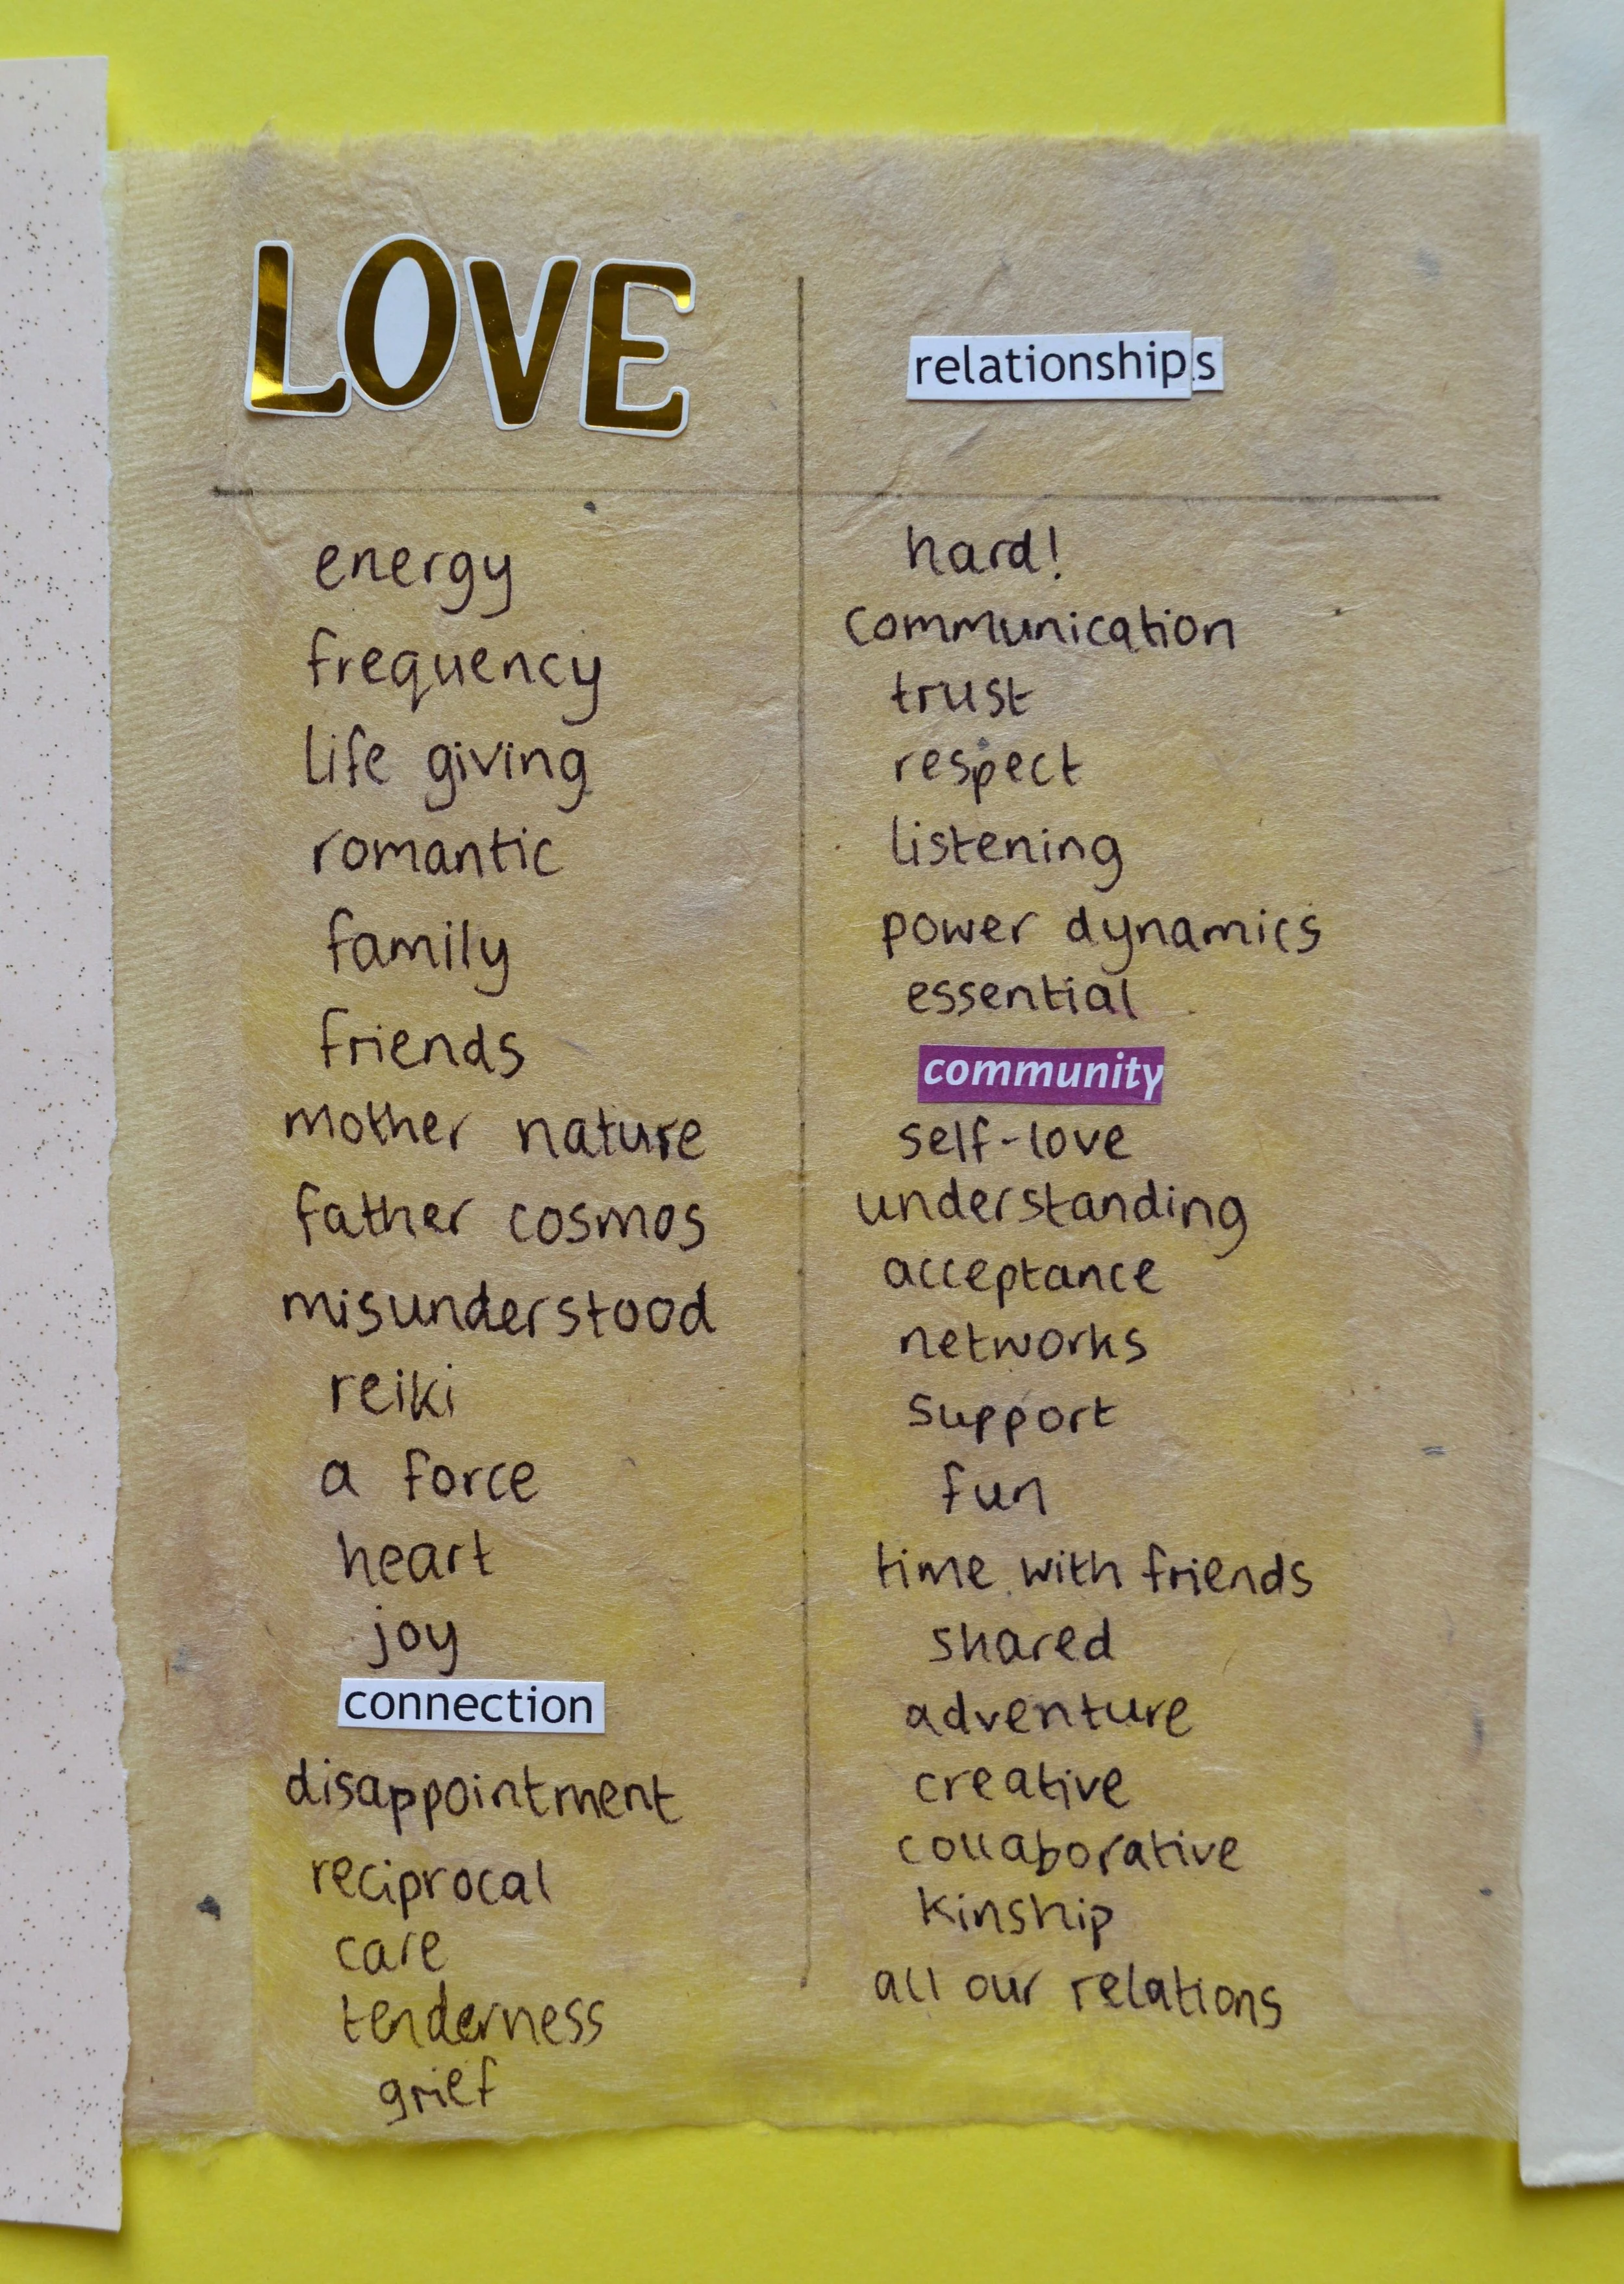 LOVE
energy
frequency
life giving
romantic
family
friends
mother nature
father cosmos
misunderstood
reiki
a force
heart
joy
connection
disappointment
reciprocal
care
tenderness
grief
relationships
hard!
communication
trust
respect
listening
power dynamics
essential
community
self-love
understanding
acceptance
networks
support
fun
time with friends
shared
adventure
creative
collaborative
kinship
all our relations